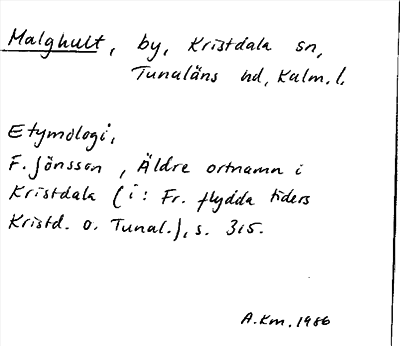 Malghult, by, Kristdala sn,
Tunaläns hd, Kalm. l.
Etymologi,
F. Jönsson, Äldre ortnamn i
Kristdala (i: Fr. flydda tiders
Kristd. o. Tunal.), s. 315.
A. Km. 1986